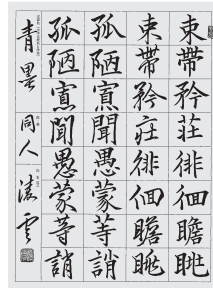 束帶矜莊徘徊瞻眺
束帶矜莊徘徊瞻眺
孤陋寡聞愚蒙等誚
孤陋寡聞愚蒙等誚
青墨同人